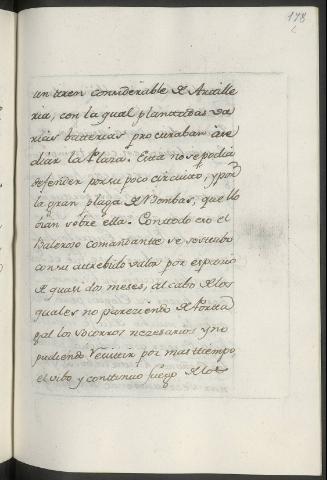 178
un tren considerable de Artille
ria, con la qual plantadas va
rias batterias procuraban ase
diar la Plaza. Esta no se podia
defender por su poco circuito, y por
la gran plaga de Bombas, que llo
bian sobre ella. Con todo eso el
Valeroso Comandante se sostubo
con su atrebido valor por espacio
de quasi dos meses, al cabo de los
quales no pareciendo de Portu
gal los socorros nezesarios y no
pudiendo resistir por mas tiempo
el vibo y continuo fuego de los